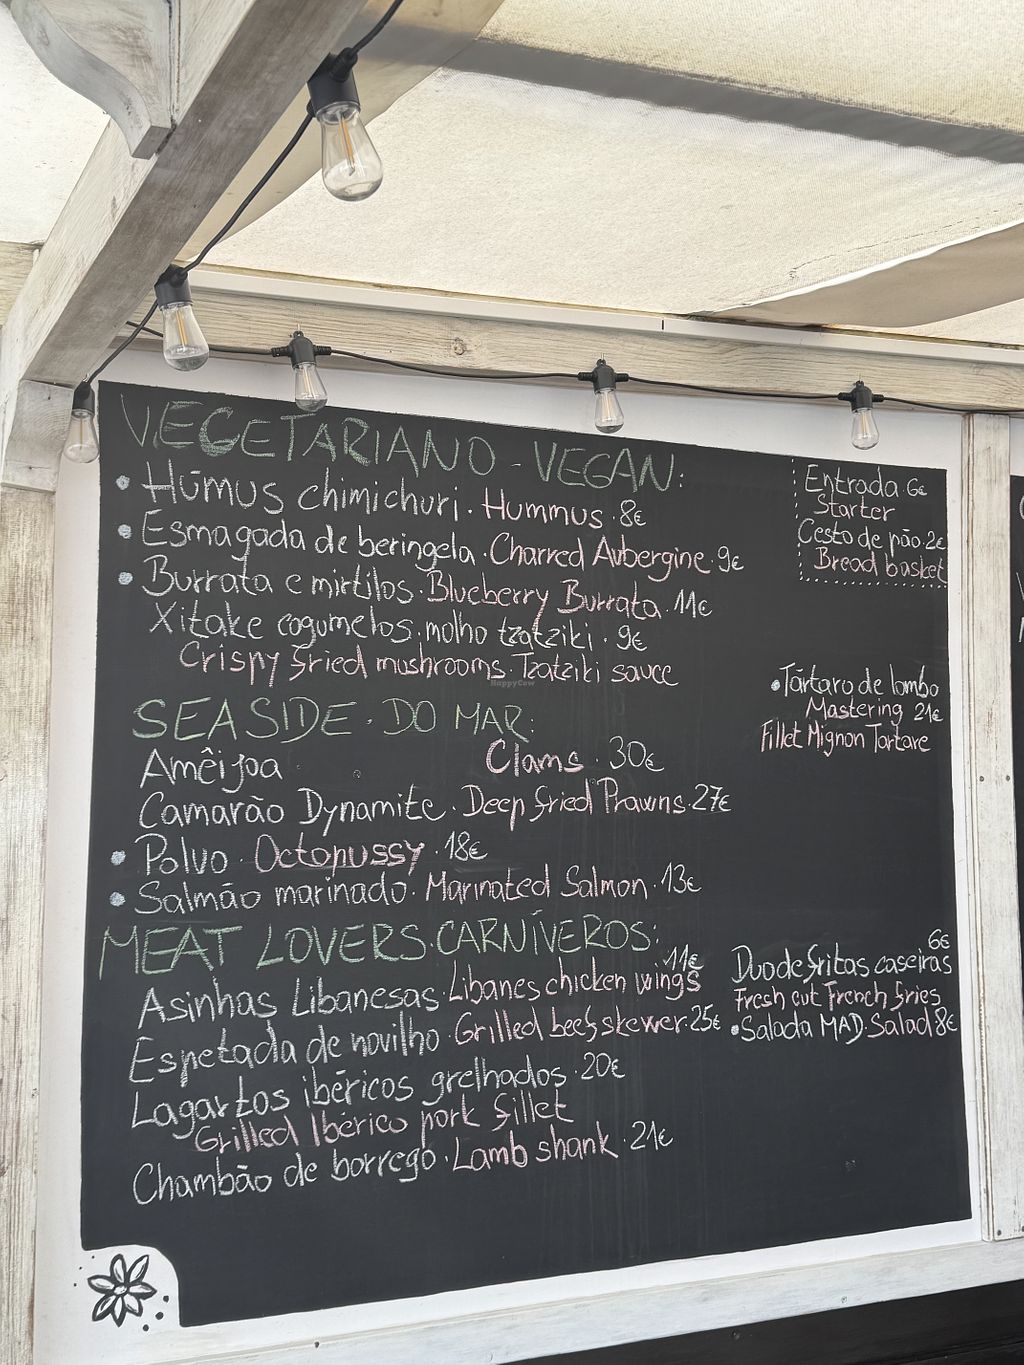 VEGETARIANO - VEGAN:
• Húmus chimichuri · Hummus · 8€
• Esmagada de beringela · Charred Aubergine · 9€
• Burrata e mirtilos · Blueberry Burrata · 11€
Xitake cogumelos · molho tzatziki · 9€
Crispy fried mushrooms · Tzatziki sauce
Entrada 6€
Starter
Cesto de pão · 2€
Bread basket
HappyCow
• Tártaro de lombo
Mastering 21€
Fillet Mignon Tartare
SEASIDE · DO MAR:
Amêijoa · Clams · 30€
Camarão Dynamite · Deep fried Prawns · 27€
• Polvo · Octopussy · 18€
• Salmão marinado · Marinated Salmon · 13€
MEAT LOVERS · CARNÍVEROS:
Asinhas Libanesas · Libanes chicken wings 11€
Espetada de novilho · Grilled beef skewer · 25€
Lagartos ibéricos grelhados · 20€
Grilled Ibérico pork fillet
Chambão de borrego · Lamb shank · 21€
6€
Duo de fritas caseiras
Fresh cut French fries
• Salada MAD · Salad 8€